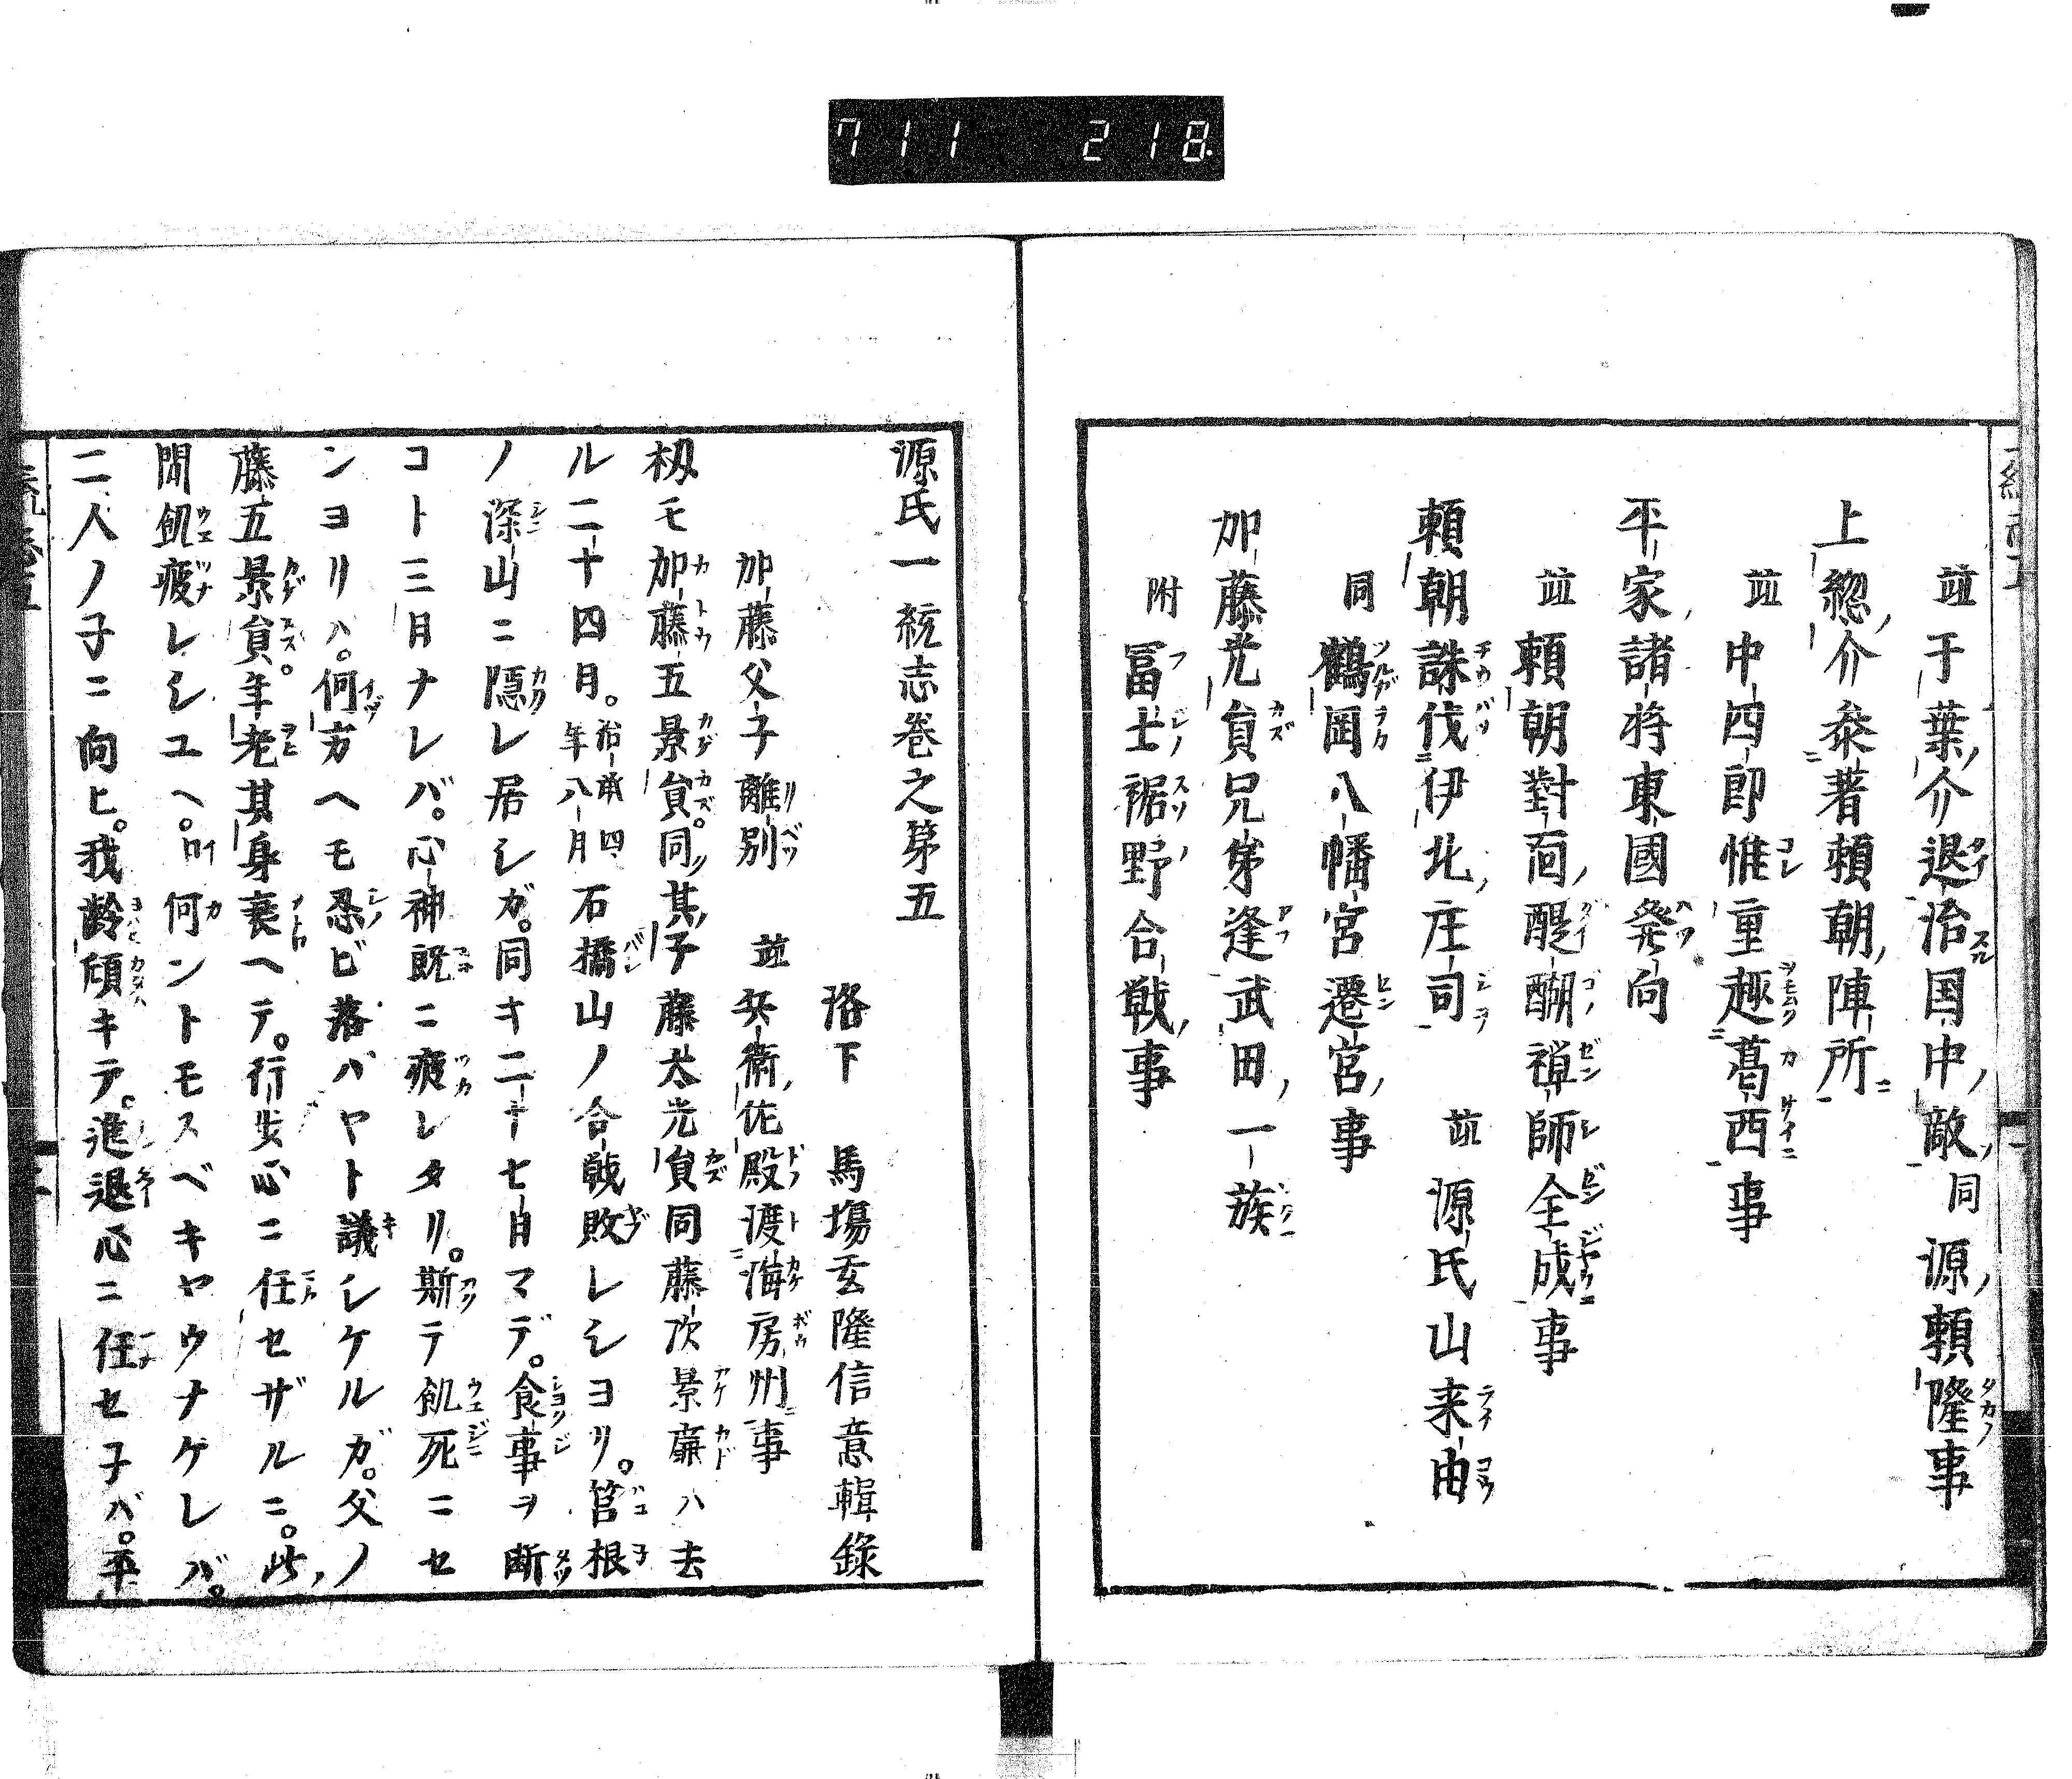 711 218.
並千葉介退治国中敵同源頼隆事
上総介参著頼朝陣所
並中四郎惟重趣葛西事
平家諸将東國発向
並頼朝對面醍醐禅師全成事
頼朝誅伐伊北庄司 並源氏山来由
同鶴岡八幡宮遷宮事
加藤光貟兄弟逢武田一族
附冨士裾野合戦事
源氏一統志巻之第五
洛下 馬場玄隆信意輯録
加藤父子離別 並兵衛佐殿渡海房州事
扨モ加藤五景貟。同其子藤太光貟同藤次景廉ハ去
ル二十四月。治承四年八月石橋山ノ合戦敗レシヨリ。筥根
ノ深山ニ隠レ居シガ。同キ二十七日マデ。食事ヲ断
コト三月ナレバ。心神既ニ疲レタリ。斯テ飢死ニセ
ンヨリハ。何方ヘモ忍ビ落バヤト議シケルガ。父ノ
藤五景貟。年老其身衰ヘテ。行歩心ニ任セザルニ。此
間飢疲レシユヘ。何ントモスベキヤウナケレバ。
二人ノ子ニ向ヒ。我齢傾キテ。進退心ニ任セ子バ。平